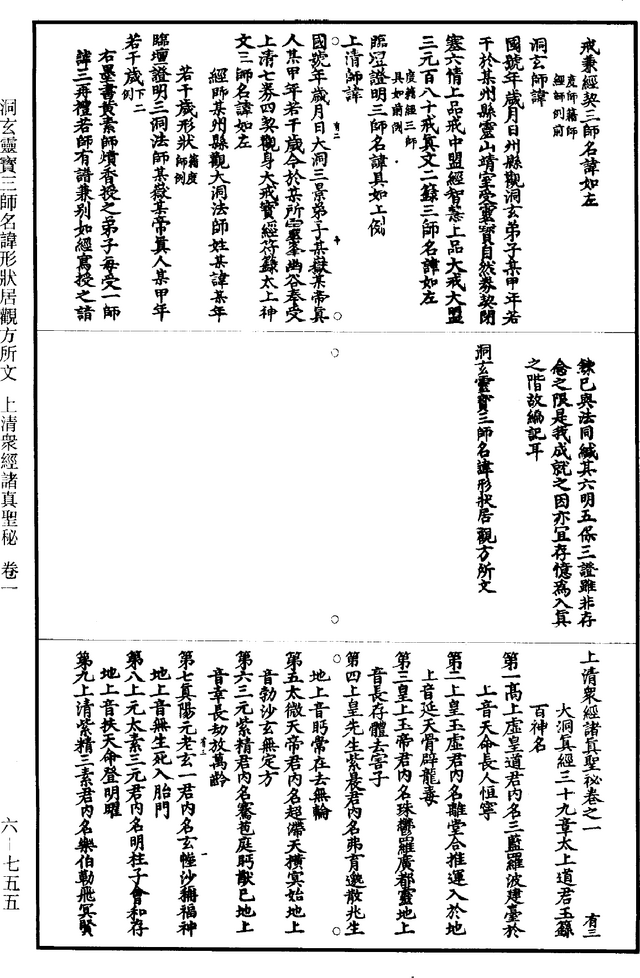 戒奉經契三師名諱如左
度師籍師
經師例前
洞玄師諱
國號年歲月日州縣觀洞玄弟子某甲年若
干於某州縣靈山靖室受靈寶自然券契閉
塞六情上品戒中盟經智慧上品大戒大盟
三元百八十戒真文二籙三師名諱如左
度籍經三師
具如前例
臨壇證明三師名諱具如上例
上清師諱
國號年歲月日大洞三景弟子某嶽某帝真
人某甲年若干歲今於某所靈峯幽谷奉受
上清七券四契觀身大戒寶經符籙太上神
文三師名諱如左
經師某州縣觀大洞法師姓某諱某年
若干歲形狀籍度
師例
臨壇證明三洞法師某嶽某帝真人某甲年
若干歲例下二
右墨書黃素師燒香授之弟子每受一師
諱三再禮若師有譜兼別如經寫授之請
籙已與法同緘其六明五保三證雖非存
念之限是我成就之因亦宜存憶為入真
之階故編記耳
洞玄靈寶三師名諱形狀居觀方所文
上清衆經諸真聖秘卷之一
有三
大洞真經三十九章太上道君玉籙
百神名
第一高上虛皇道君內名三藍羅波建臺於
上音天命長人恒寧
第二上皇玉虛君內名離堂合推運入於地
上音延天骨辟龍毒
第三皇上玉帝君內名珠鬱羅廣都靈地上
音長存體去害子
第四上皇先生紫晨君內名弗育邈散兆生
地上音眄常在去無輪
第五太微天帝君內名超滯天橫冥始地上
音勃沙玄無定方
第六三元紫精君內名騫芭庭眄猷巳地上
音幸長劫放萬齡
第七真陽元老玄一君內名玄幢沙獼福神
地上音無生死入胎門
第八上元太素三元君內名明柱子會和存
地上音扶天命登明曜
第九上清紫精三素君內名樂伯勒飛冥賢
洞玄靈寶三師名諱形狀居觀方所文　上清衆經諸真聖秘　卷一
六－七五五